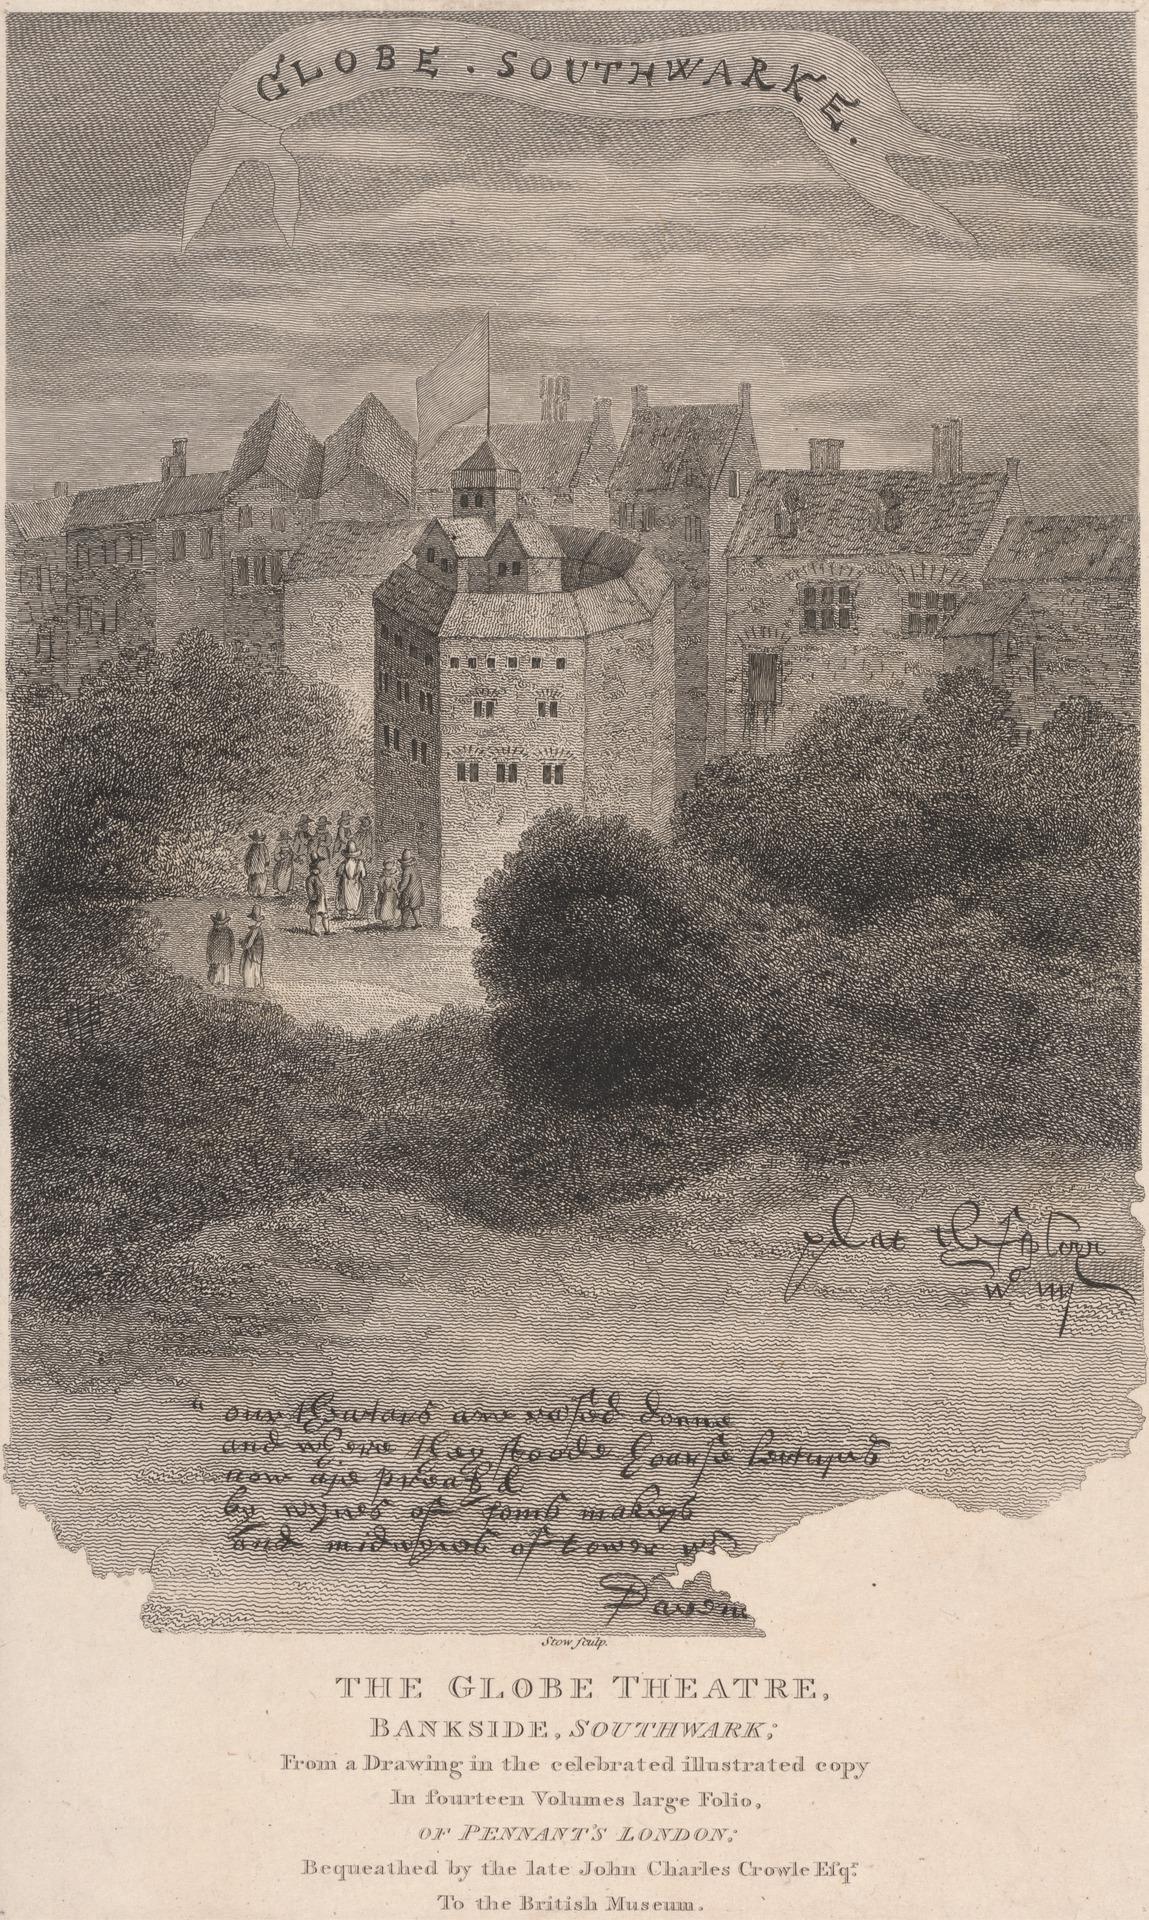 GLOBE . SOUTHWARKE.
at
W.
"our
and where they stoode hoarse
now are
by wynes of makers
and midwyves of tower
Stow sculp.
THE GLOBE THEATRE,
BANKSIDE, SOUTHWARK;
From a Drawing in the celebrated illustrated copy
In fourteen Volumes large Folio,
OF PENNANT'S LONDON;
Bequeathed by the late John Charles Crowle Esqr.
To the British Museum.